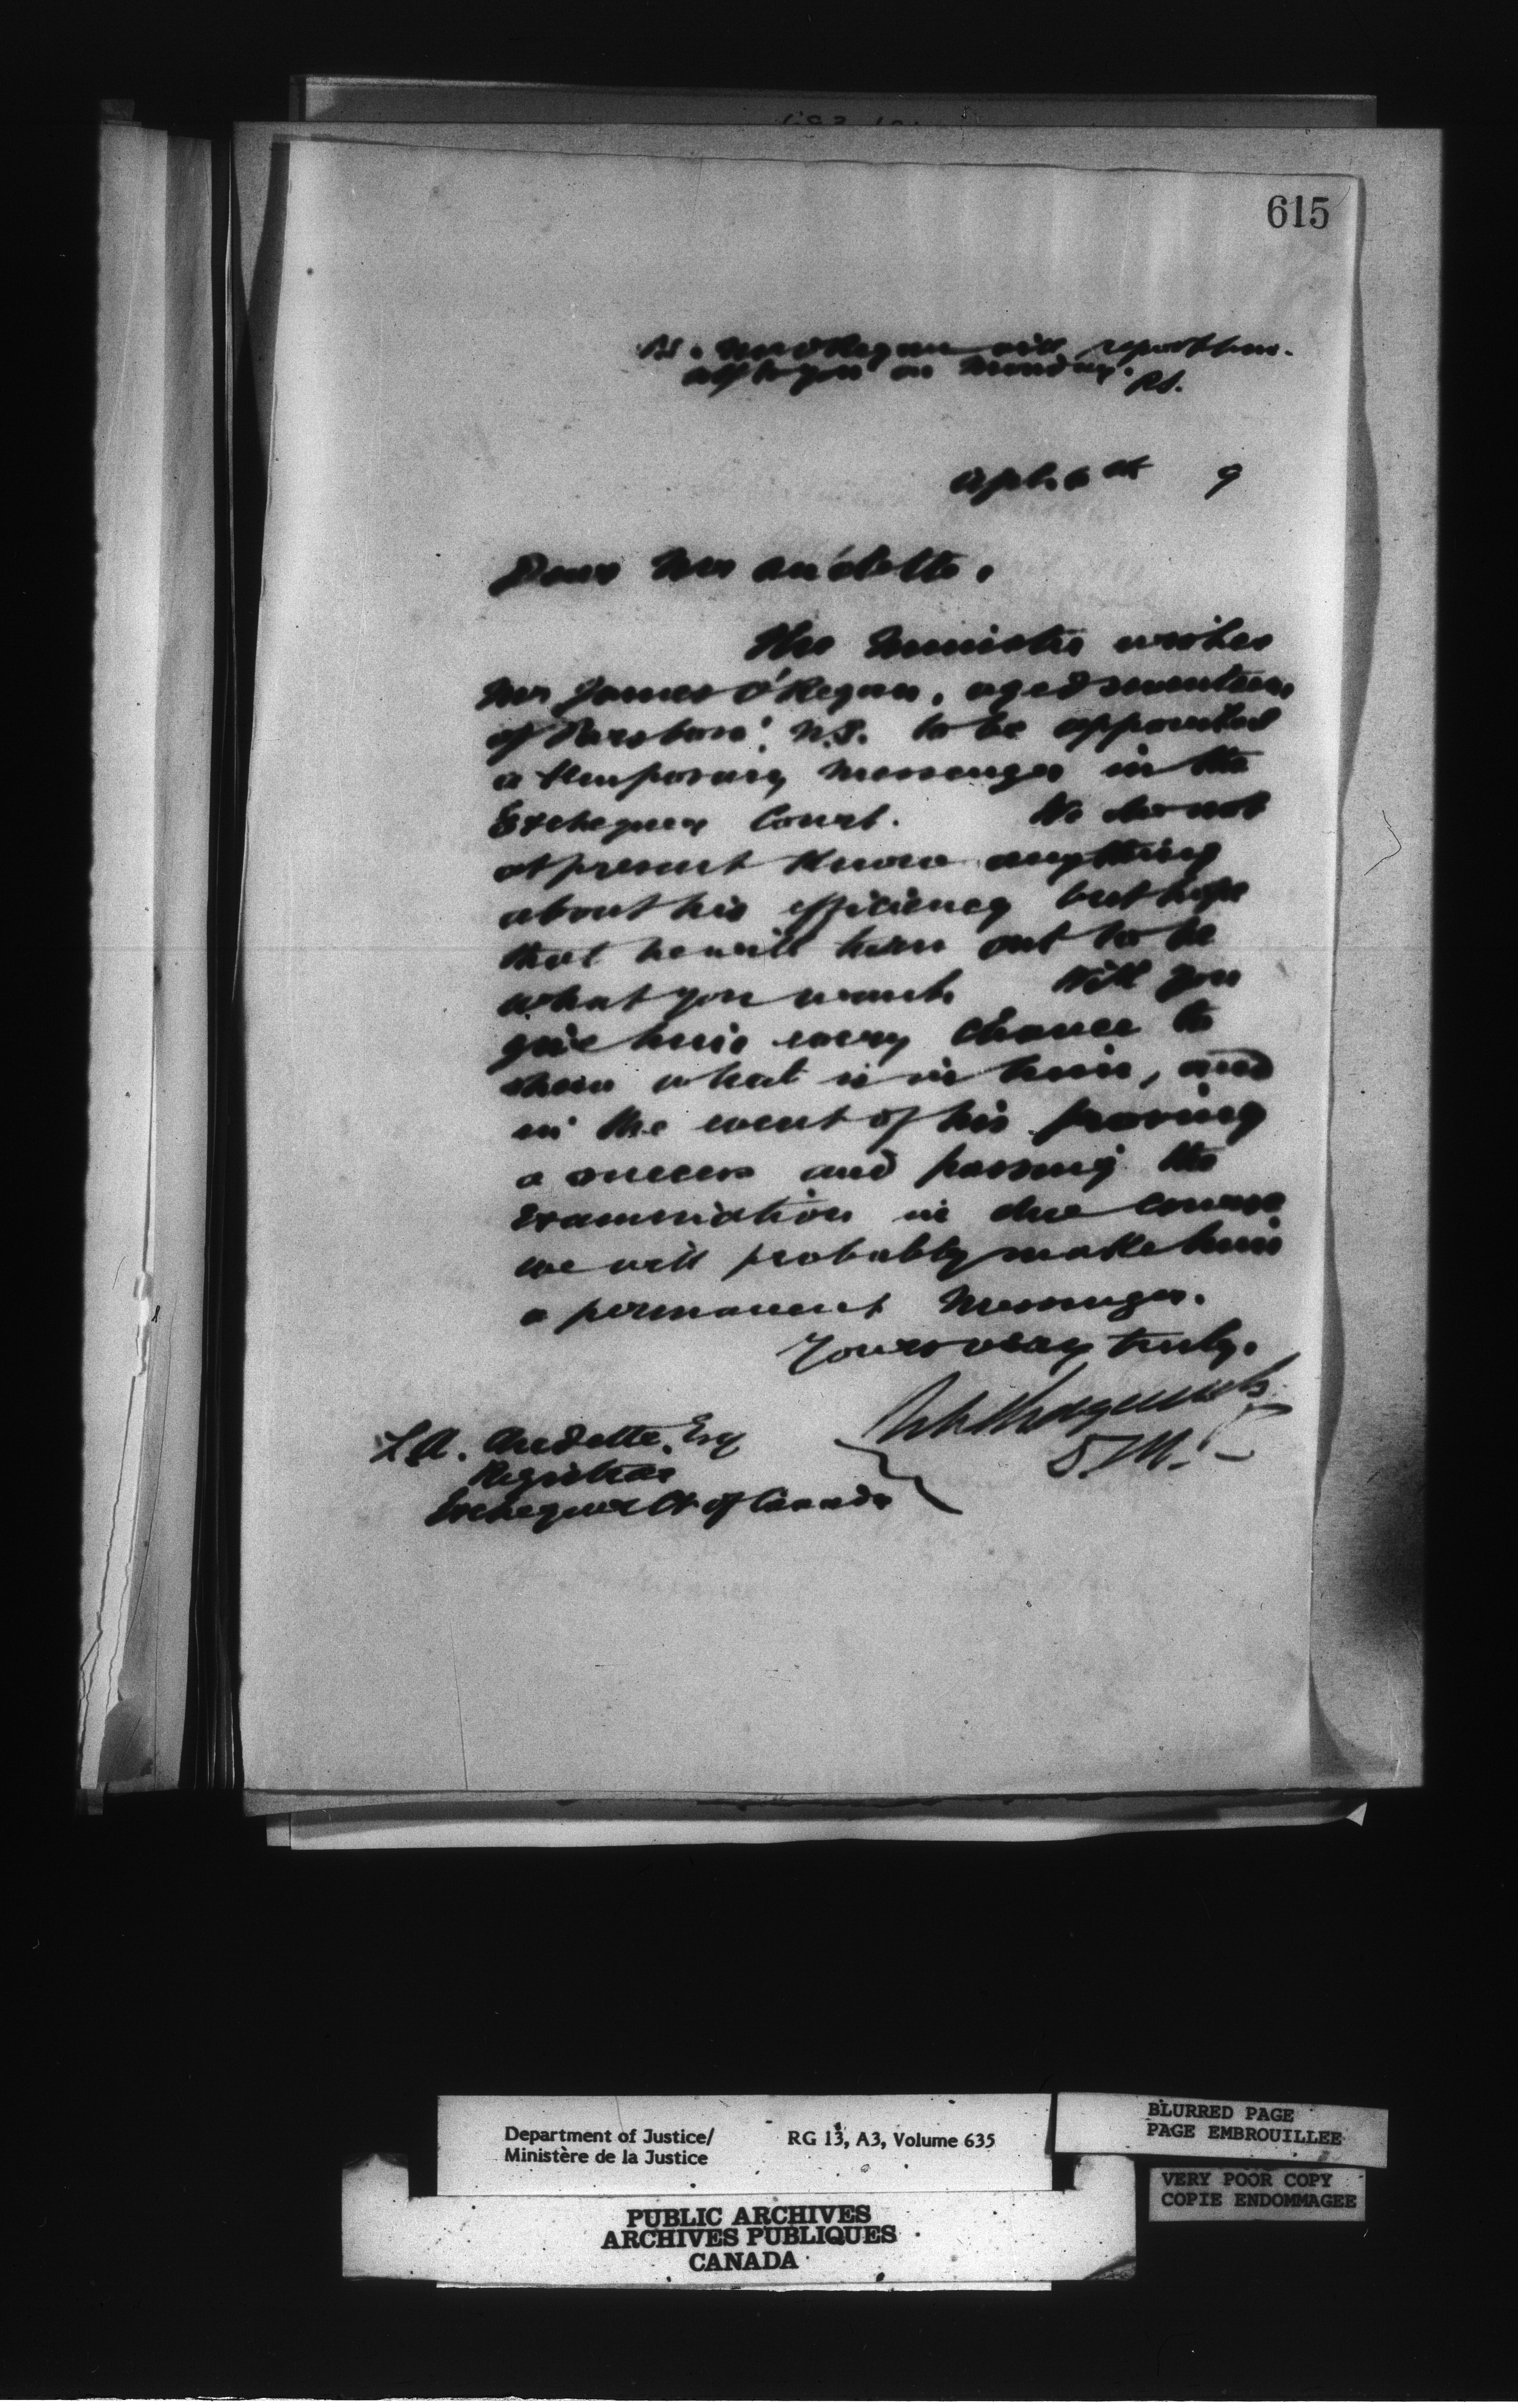 615
P.S. Mr O'Regan will report him-
self to you on Monday. P.S.
Apl. 6th 9
Dear Mr Audette,
The Minister wishes
Mr James O'Regan, aged seventeen,
of N.S. to be appointed
a temporary messenger in the
Exchequer Court. We do not
at present know anything
about his efficiency but hope
that he will turn out to be
what you want. Will you
give him every chance to
show what is in him, and
in the event of his proving
a success and passing the
examination in due course
we will probably make him
a permanent messenger.
Yours very truly,
L.A. Audette, Esq
Registrar
Exchequer Ct of Canada
D.M.J.
Department of Justice/
Ministère de la Justice
RG 13, A3, Volume 635
BLURRED PAGE
PAGE EMBROUILLEE
VERY POOR COPY
COPIE ENDOMMAGEE
PUBLIC ARCHIVES
ARCHIVES PUBLIQUES
CANADA